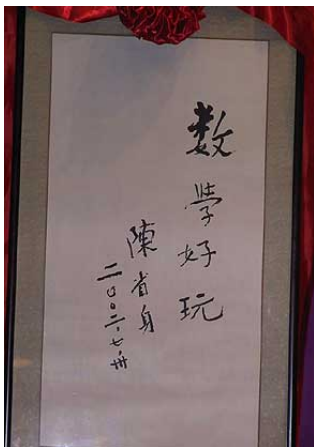 数學好玩
陳省身
二〇〇二.七卅